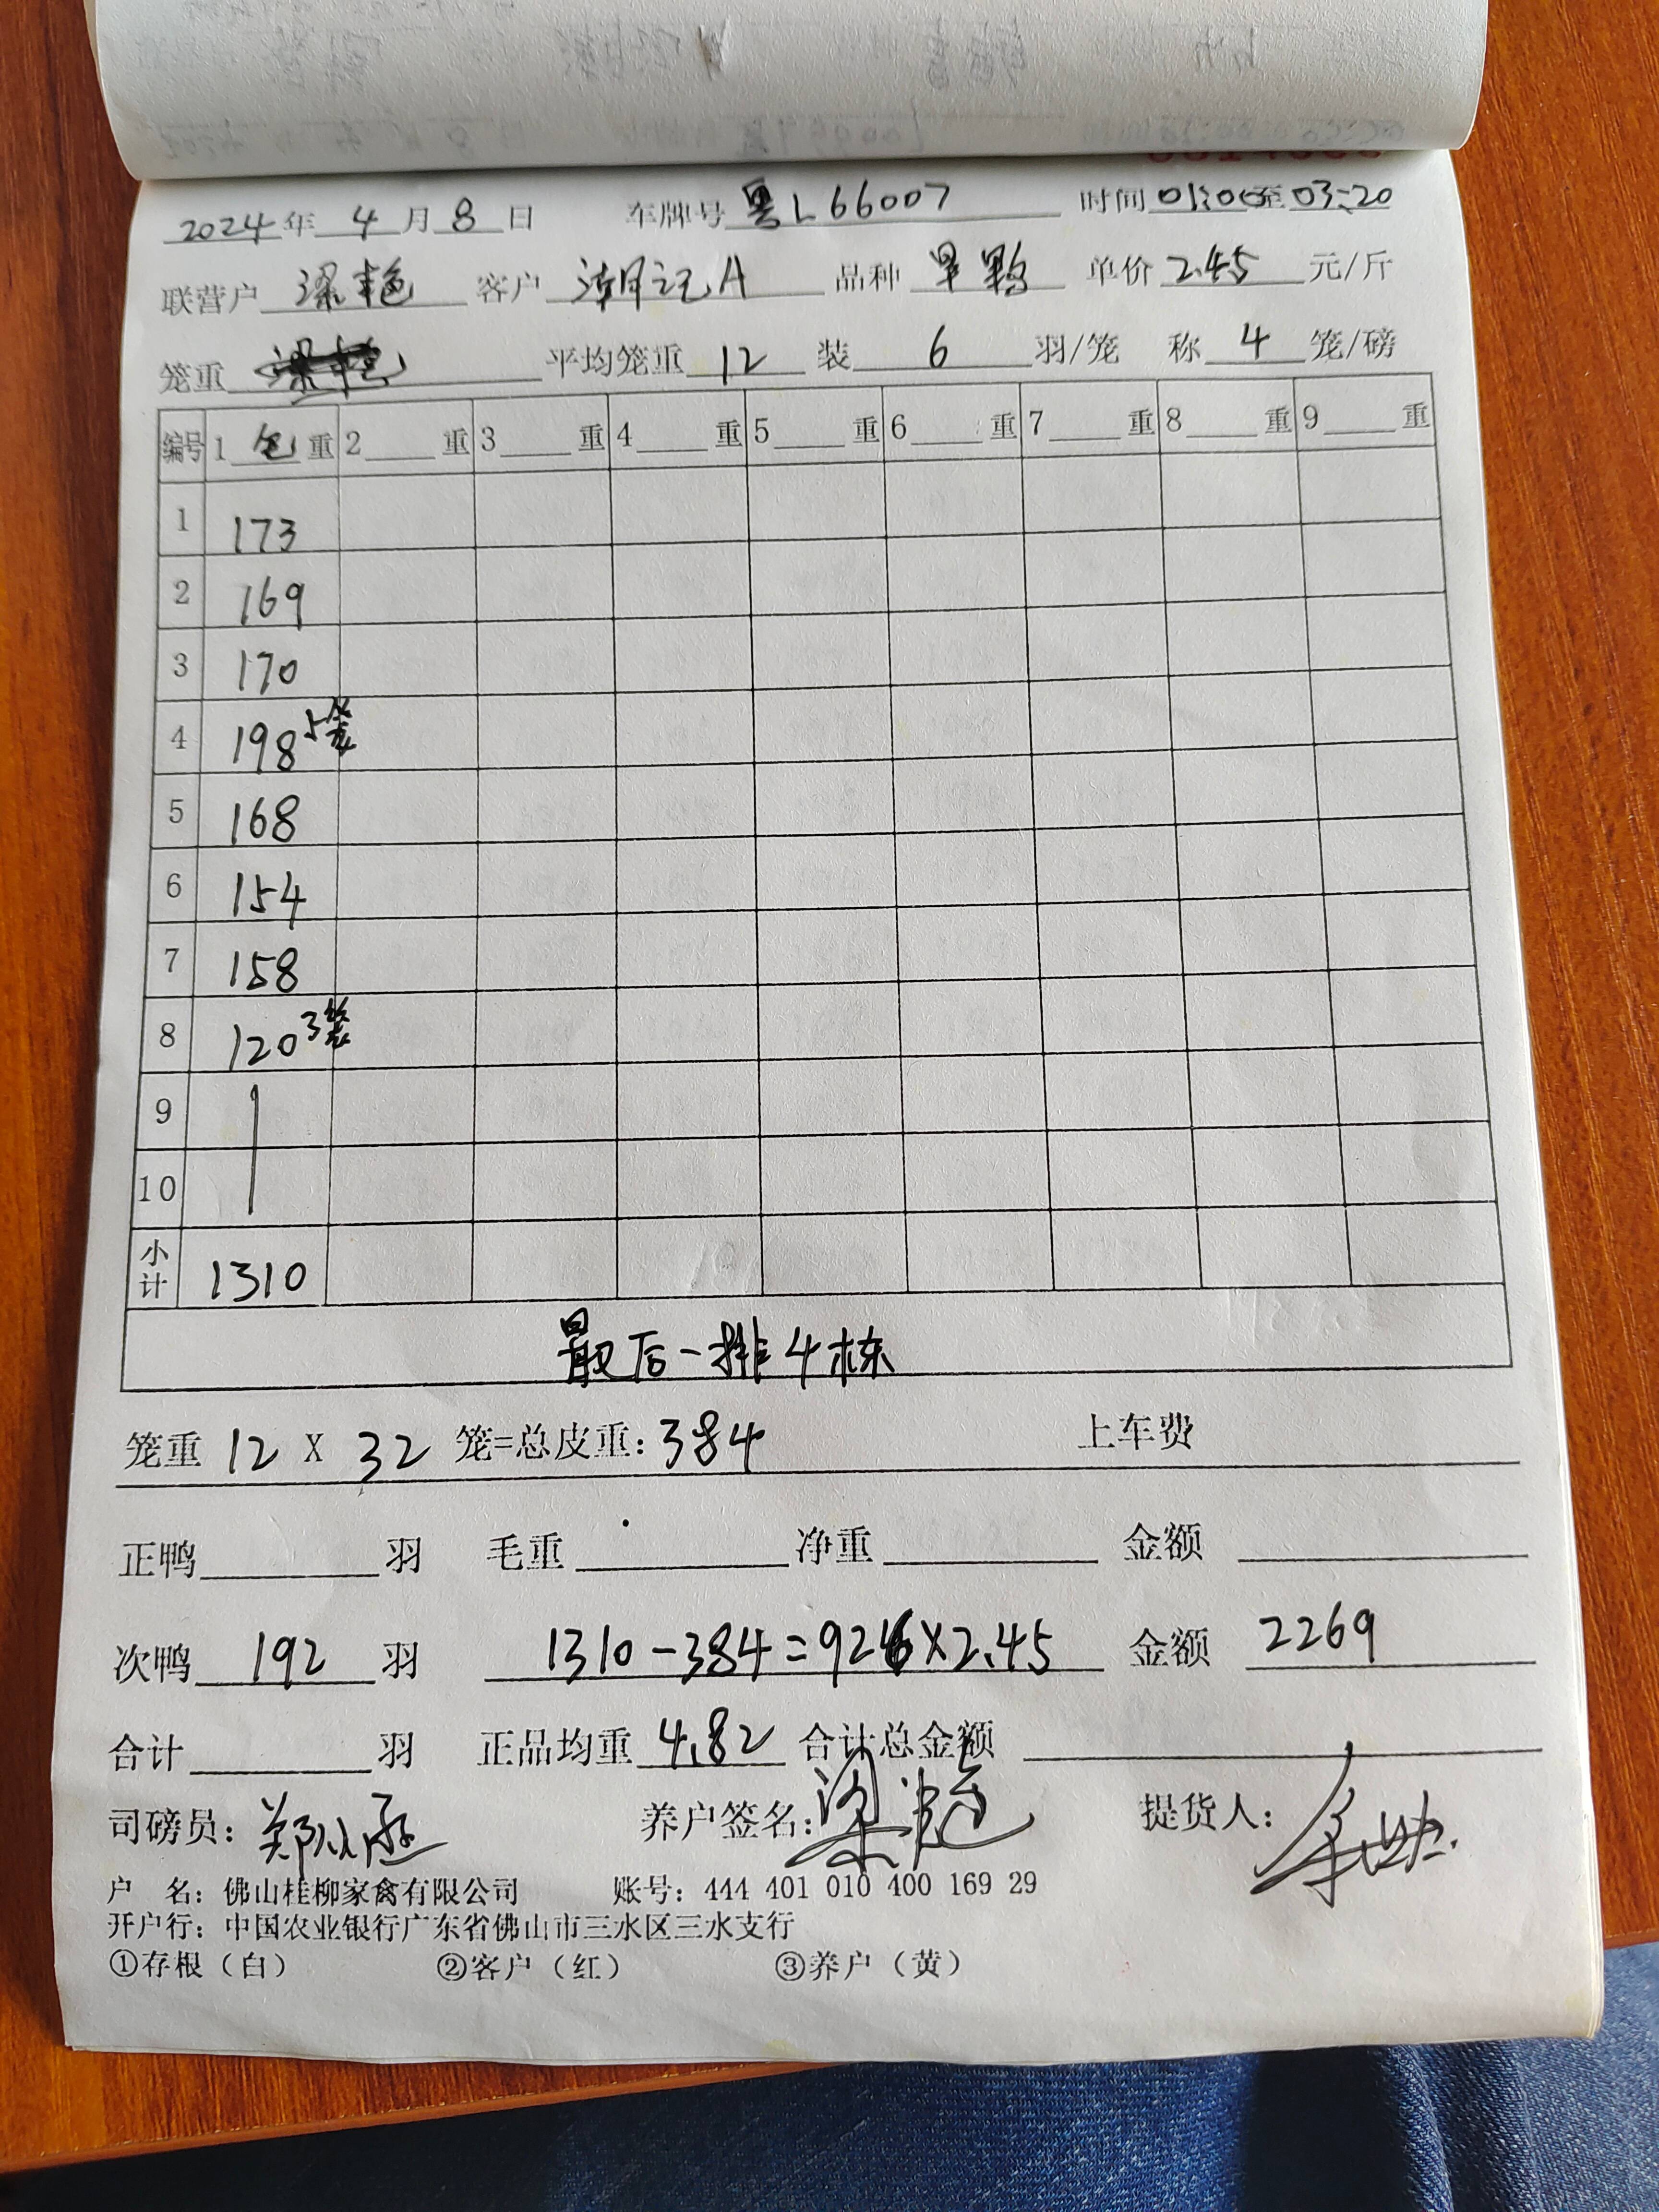 2024年 4 月 8 日 车牌号 粤L66007 时间 01:06至03:20
联营户 梁艳 客户 潮记A 品种 单价 2.45 元/斤
笼重 平均笼重 12 装 6 羽/笼 称 4 笼/磅
编号 1 包 重 2 重 3 重 4 重 5 重 6 重 7 重 8 重 9 重
1 173
2 169
3 170
4 198 5笼
5 168
6 154
7 158
8 120 3笼
9
10
小计 1310
最后一排4栋
笼重 12 X 32 笼=总皮重:384 上车费
正鸭 羽 毛重 净重 金额
次鸭 192 羽 1310-384=926×2.45 金额 2269
合计 羽 正品均重 4.82 合计总金额
司磅员: 养户签名: 提货人:
户 名: 佛山桂柳家禽有限公司 账号: 444 401 010 400 169 29
开户行: 中国农业银行广东省佛山市三水区三水支行
①存根（白） ②客户（红） ③养户（黄）